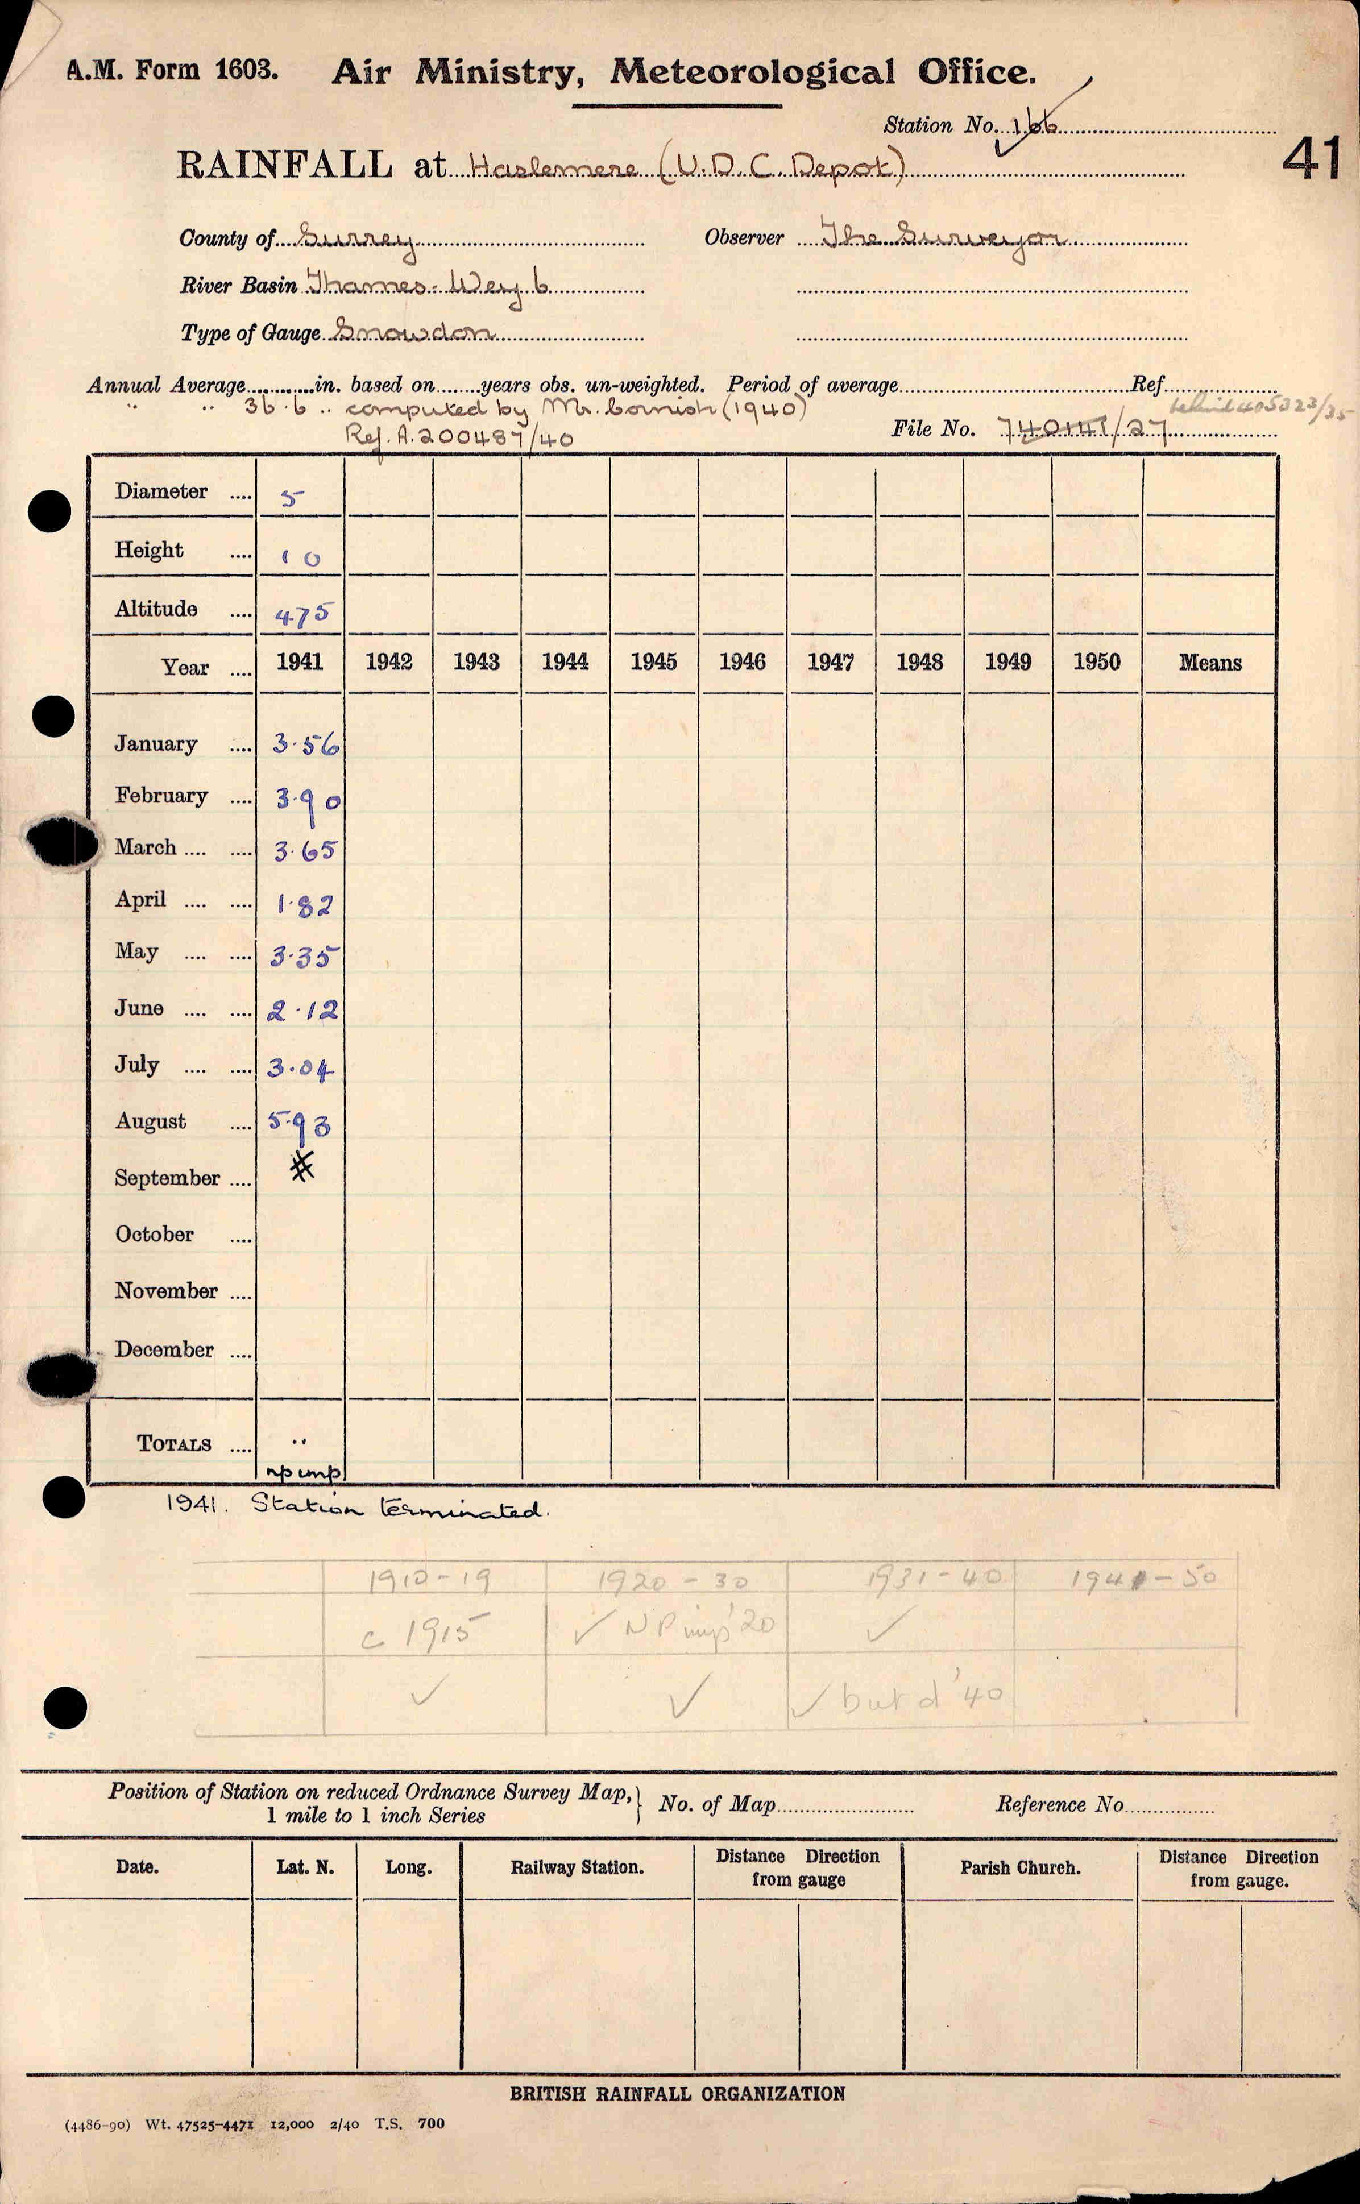 A.M. Form 1603. Air Ministry, Meteorological Office.
Station No. 166
41
RAINFALL at Haslemere (U.D.C. Depot)
County of Surrey Observer The Surveyor
River Basin Thames-Wey b
Type of Gauge Snowdon
Annual Average............in. based on.......years obs. un-weighted. Period of average.......... Ref..........
" " 36.6 .. computed by Mr. Cornish (1940)
behind 405323/35
Ref. A.200487/40 File No. 740147/27
Diameter .... 5
Height .... 10
Altitude .... 475
Year .... 1941 1942 1943 1944 1945 1946 1947 1948 1949 1950 Means
January .... 3.56
February .... 3.90
March .... .... 3.65
April .... .... 1.82
May .... .... 3.35
June .... .... 2.12
July .... .... 3.04
August .... 5.93
September .... #
October ....
November ....
December ....
TOTALS .... ..
np imp
1941. Station terminated.
1910-19 1920-30 1931-40 1941-50
c 1915 ✓ NP imp '20 ✓
✓ ✓ ✓ but d '40
Position of Station on reduced Ordnance Survey Map,} No. of Map.......... Reference No..........
1 mile to 1 inch Series
Date. Lat. N. Long. Railway Station. Distance Direction from gauge Parish Church. Distance Direction from gauge.
BRITISH RAINFALL ORGANIZATION
(4486-90) Wt. 47525-4471 12,000 2/40 T.S. 700